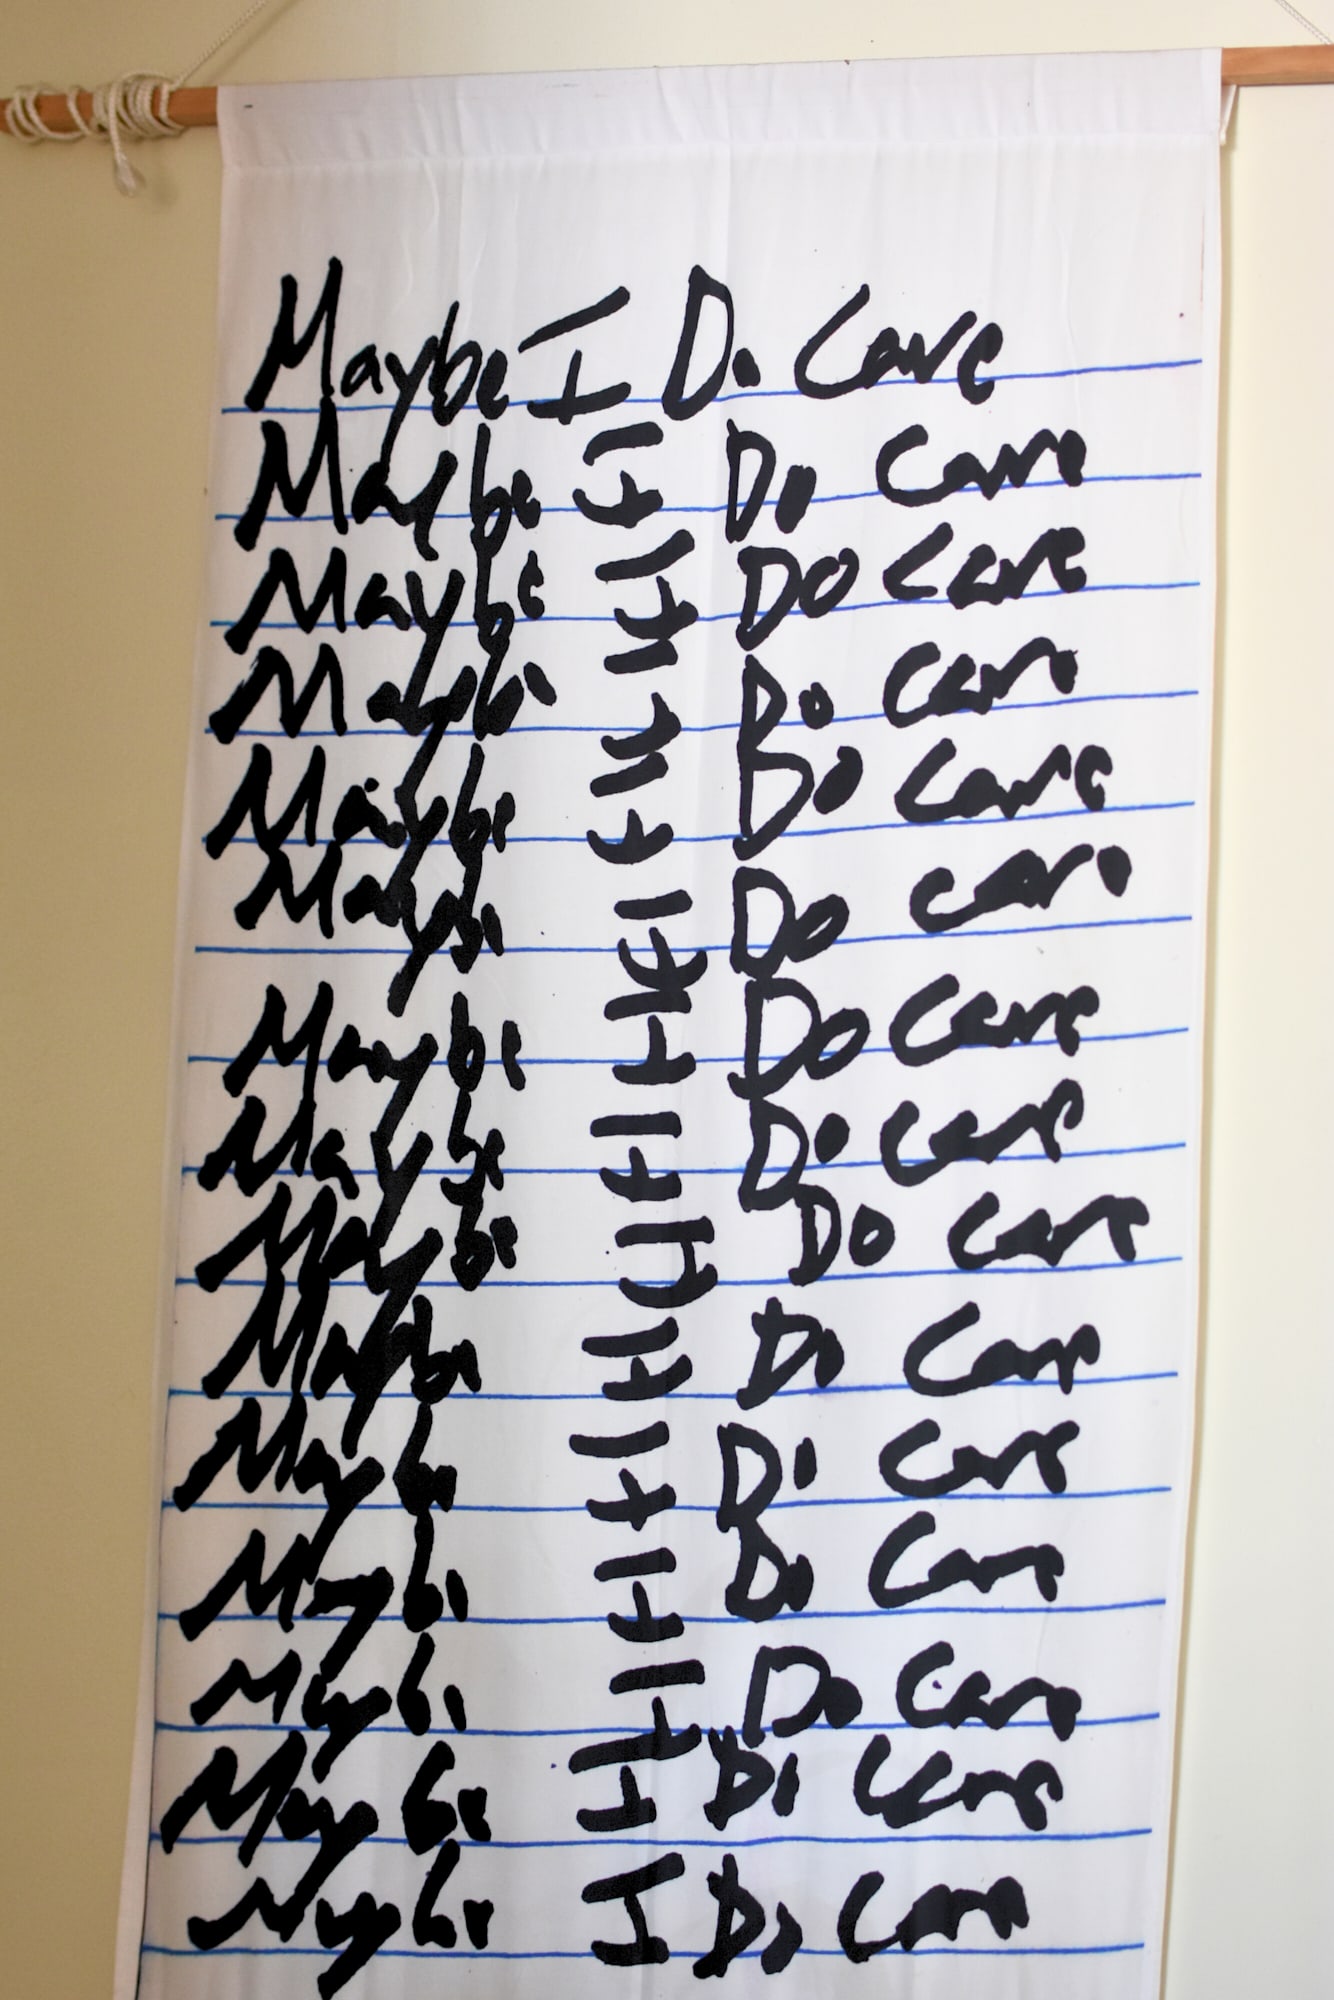 Maybe I Do Care
Maybe I Do Care
Maybe I Do Care
Maybe I Do Care
Maybe I Do Care
Maybe I Do care
Maybe I Do Care
Maybe I Do Care
Maybe I Do Care
Maybe I Do Care
Maybe I Do Care
Maybe I Do Care
Maybe I Do Care
Maybe I Do Care
Maybe I Do Care